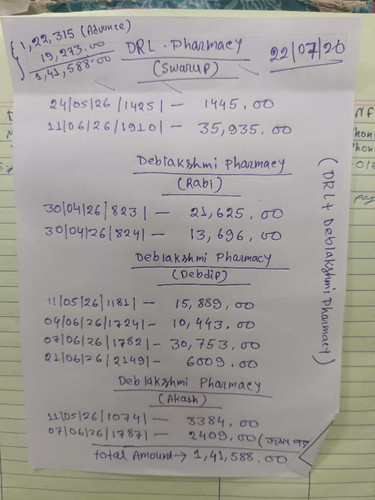 1,22,315 (Advance)
19,273.00
1,41,588.00
DRL - Pharmacy
(Swarup)
22/07/20
24/05/26/1425/ - 1445.00
11/06/26/1910/ - 35,935.00
Deblakshmi Pharmacy
(Rabi)
30/04/26/823/ - 21,625.00
30/04/26/824/ - 13,696.00
Deblakshmi Pharmacy
(Debdip)
11/05/26/1181/ - 15,889.00
04/06/26/1724/ - 10,443.00
07/06/26/1782/ - 30,753.00
21/06/26/2149/ - 6009.00
Deblakshmi Pharmacy
(Akash)
11/05/26/1074/ - 3384.00
07/06/26/1787/ - 2409.00
total Amount → 1,41,588.00
(DRL + Deblakshmi Pharmacy)